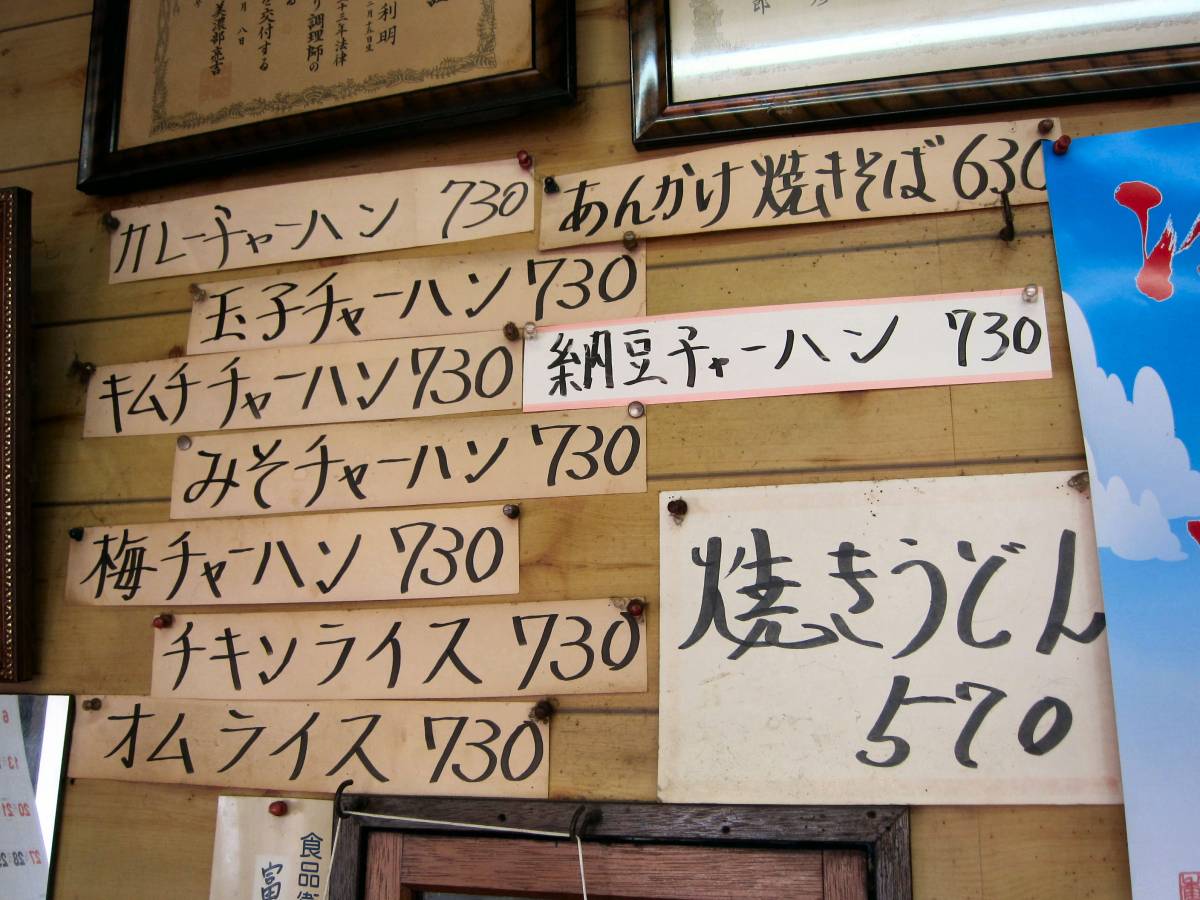 利明
二月十五日生
十三年法律
り調理師の
を交付する
月 八日
美濃部亮吉
郎
カレーチャーハン 730
あんかけ焼きそば 630
玉子チャーハン 730
納豆チャーハン 730
キムチチャーハン 730
みそチャーハン 730
梅チャーハン 730
チキンライス 730
オムライス 730
焼きうどん
570
食品衛
富
6
13
20 21
27 28 29